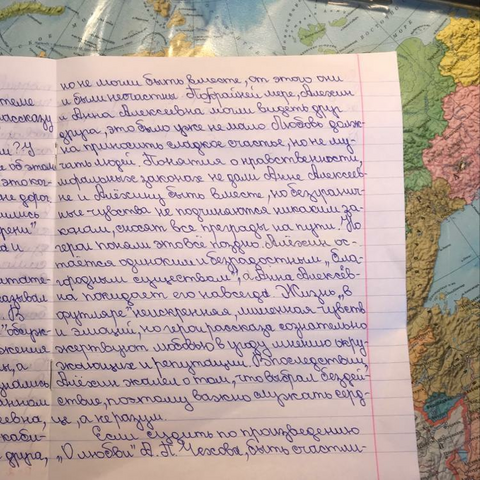 но не могли быть вместе, от этого они
и были несчастны. По крайней мере, Алехин
теме и Анна Алексеевна могли видеть друг
рассказу друга, это было уже не мало. Любовь долж-
на приносить сладкое счастье, но не му-
м? У чать людей. Понятия о нравственности,
об этом моральных законах не дали Анне Алексеев-
не и Алёхину быть вместе, но безгранич-
не дора ные чувства не подчиняются никаким за-
лишь конам, сносят все преграды на пути. Но
герои поняли это всё поздно. Алёхин ос-
и таётся одиноким и безрадостным "бла-
городным существом", а Анна Алексеев-
на покидает его навсегда. Жизнь "в
казывал футляре" неискренняя, лишенная чувств
В и эмоций, но герои рассказа сознательно
жения жертвуют любовью в угоду мнению окру-
а жающих и репутации. Впоследствии,
Алёхин жалел о том, что выбрал бездей-
ствие, поэтому важно слушать серд-
евна, це, а не разум.
каби- Если судить по произведению
друга, „О любви" А. П. Чехова, быть счастли-